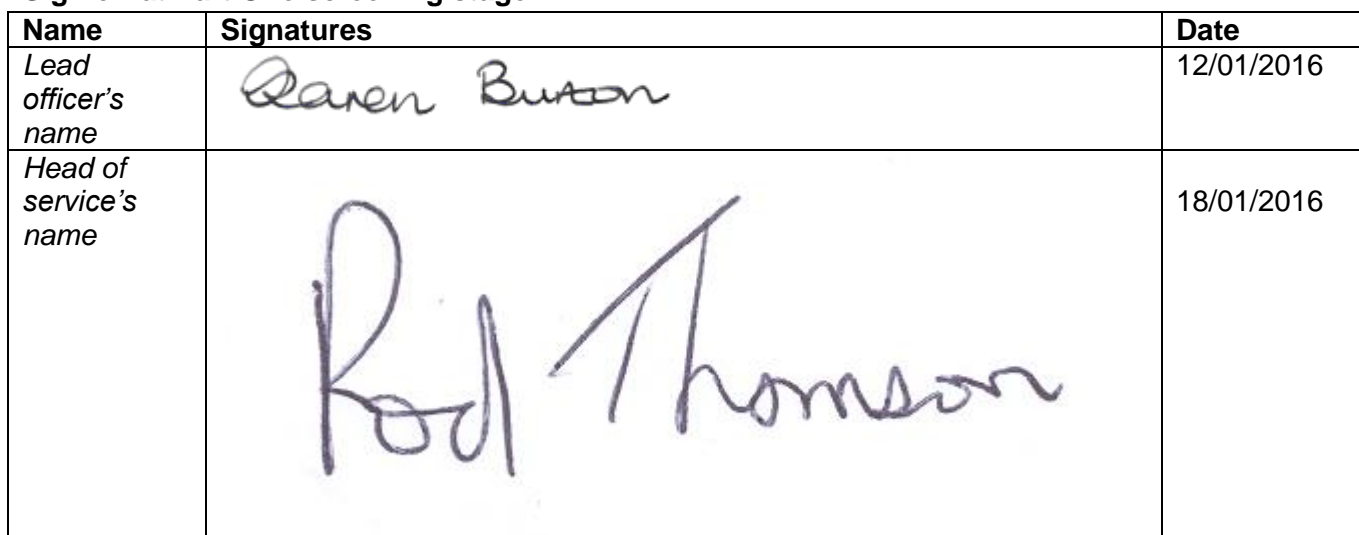 Name Signatures Date
Lead officer's name Karen Burton 12/01/2016
Head of service's name Rod Thomson 18/01/2016